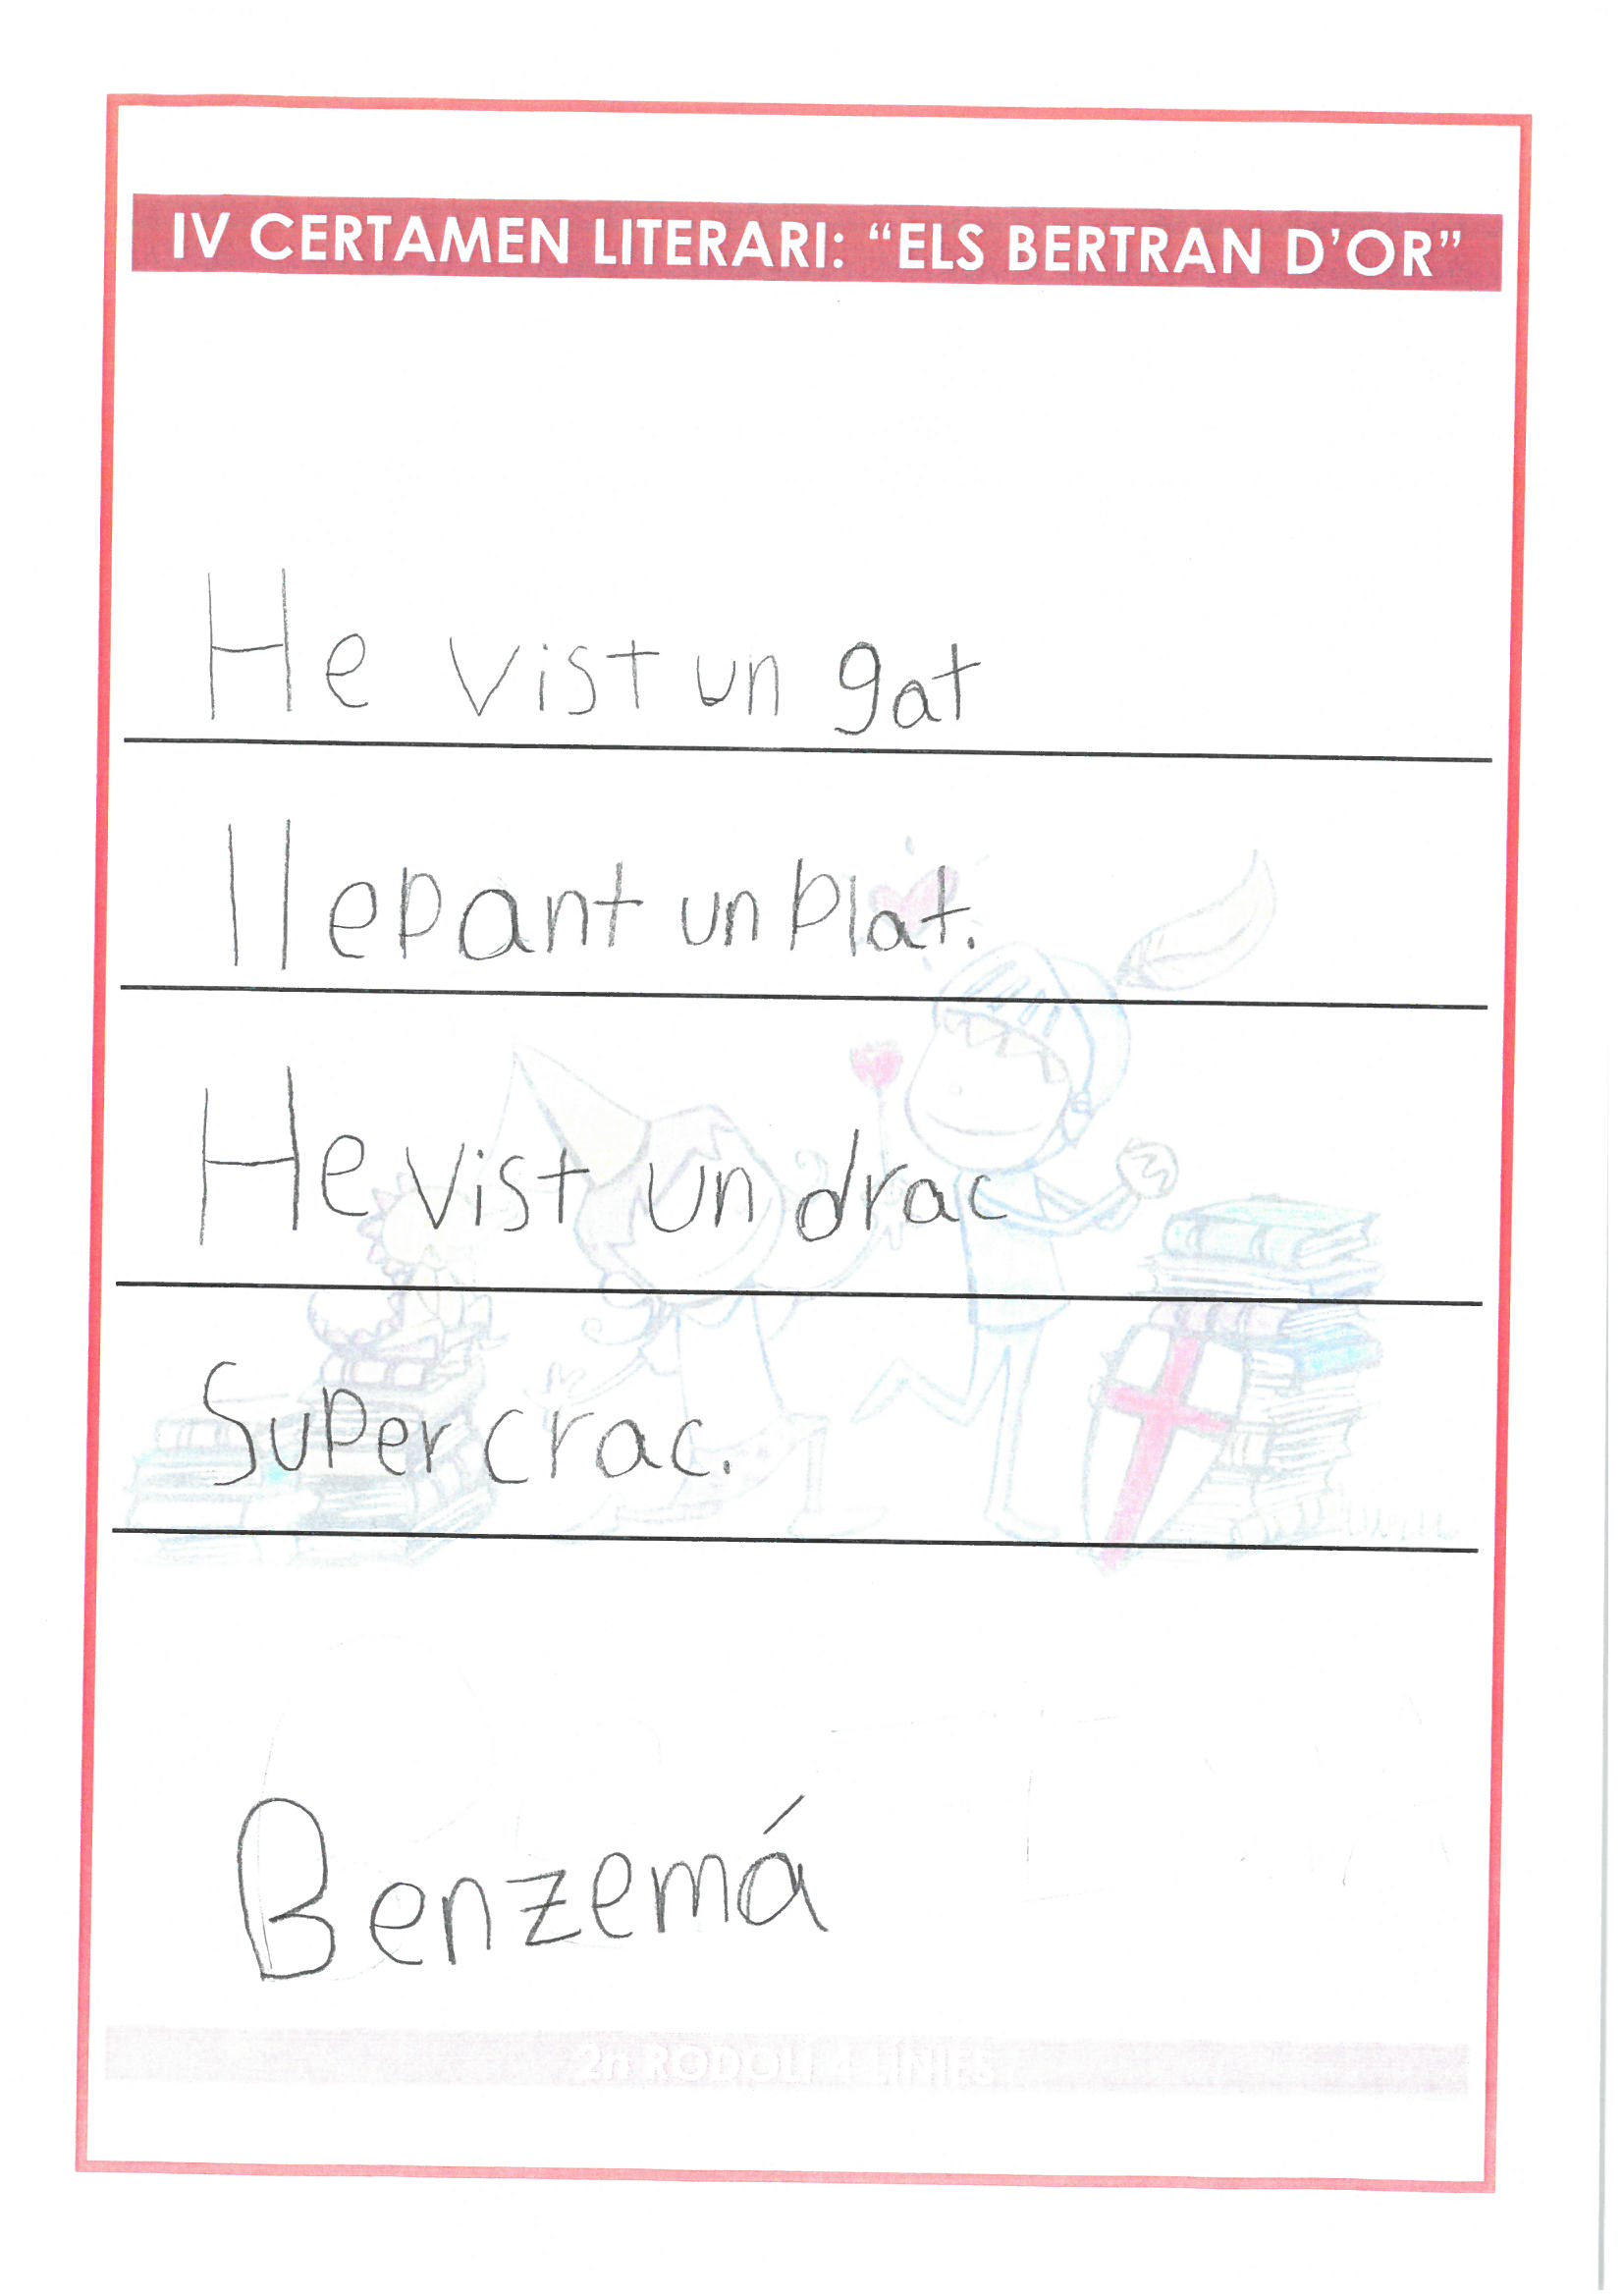 IV CERTAMEN LITERARI: “ELS BERTRAN D’OR”
He vist un gat
llepant un plat.
He vist un drac
Super crac.
Benzemá
2n RODOLI 4 LÍNIES